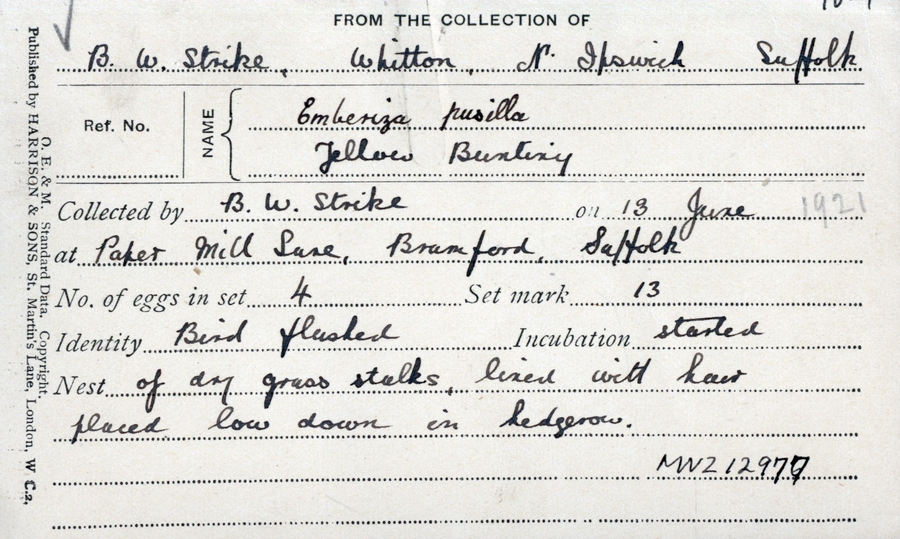 FROM THE COLLECTION OF
B. W. Strike, Whitton, N. Ipswich Suffolk
Ref. No.
NAME
Emberiza pusilla
Yellow Bunting
Collected by B. W. Strike on 13 June 1921
at Paper Mill Lane, Bramford, Suffolk
No. of eggs in set 4 Set mark 13
Identity Bird flushed Incubation started
Nest of dry grass stalks, lined with hair
placed low down in hedgerow.
MVZ 12977
O. E. & M. Standard Data. Copyright.
Published by HARRISON & SONS, St. Martin's Lane, London, W.C.2,